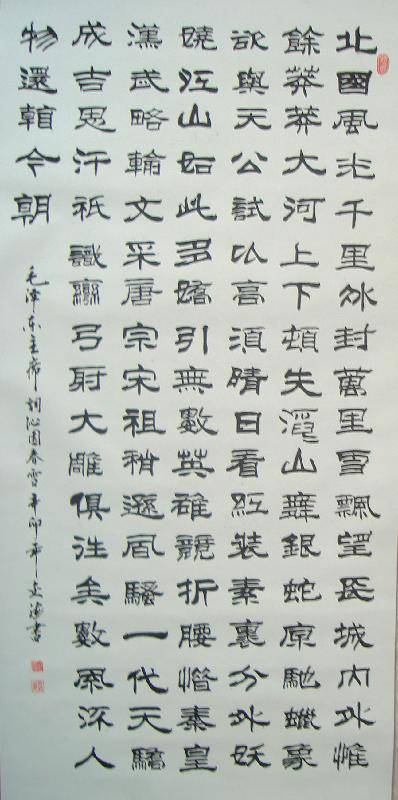 北國風光千里冰封萬里雪飄望長城內外惟
餘莽莽大河上下頓失滔山舞銀蛇原馳蠟象
欲與天公試比高須晴日看紅裝素裹分外妖
嬈江山如此多嬌引無數英雄競折腰惜秦皇
漢武略輸文采唐宗宋祖稍遜風騷一代天驕
成吉思汗祇識彎弓射大雕俱往矣數風流人
物還看今朝
毛泽东主席詞沁园春雪辛卯年書